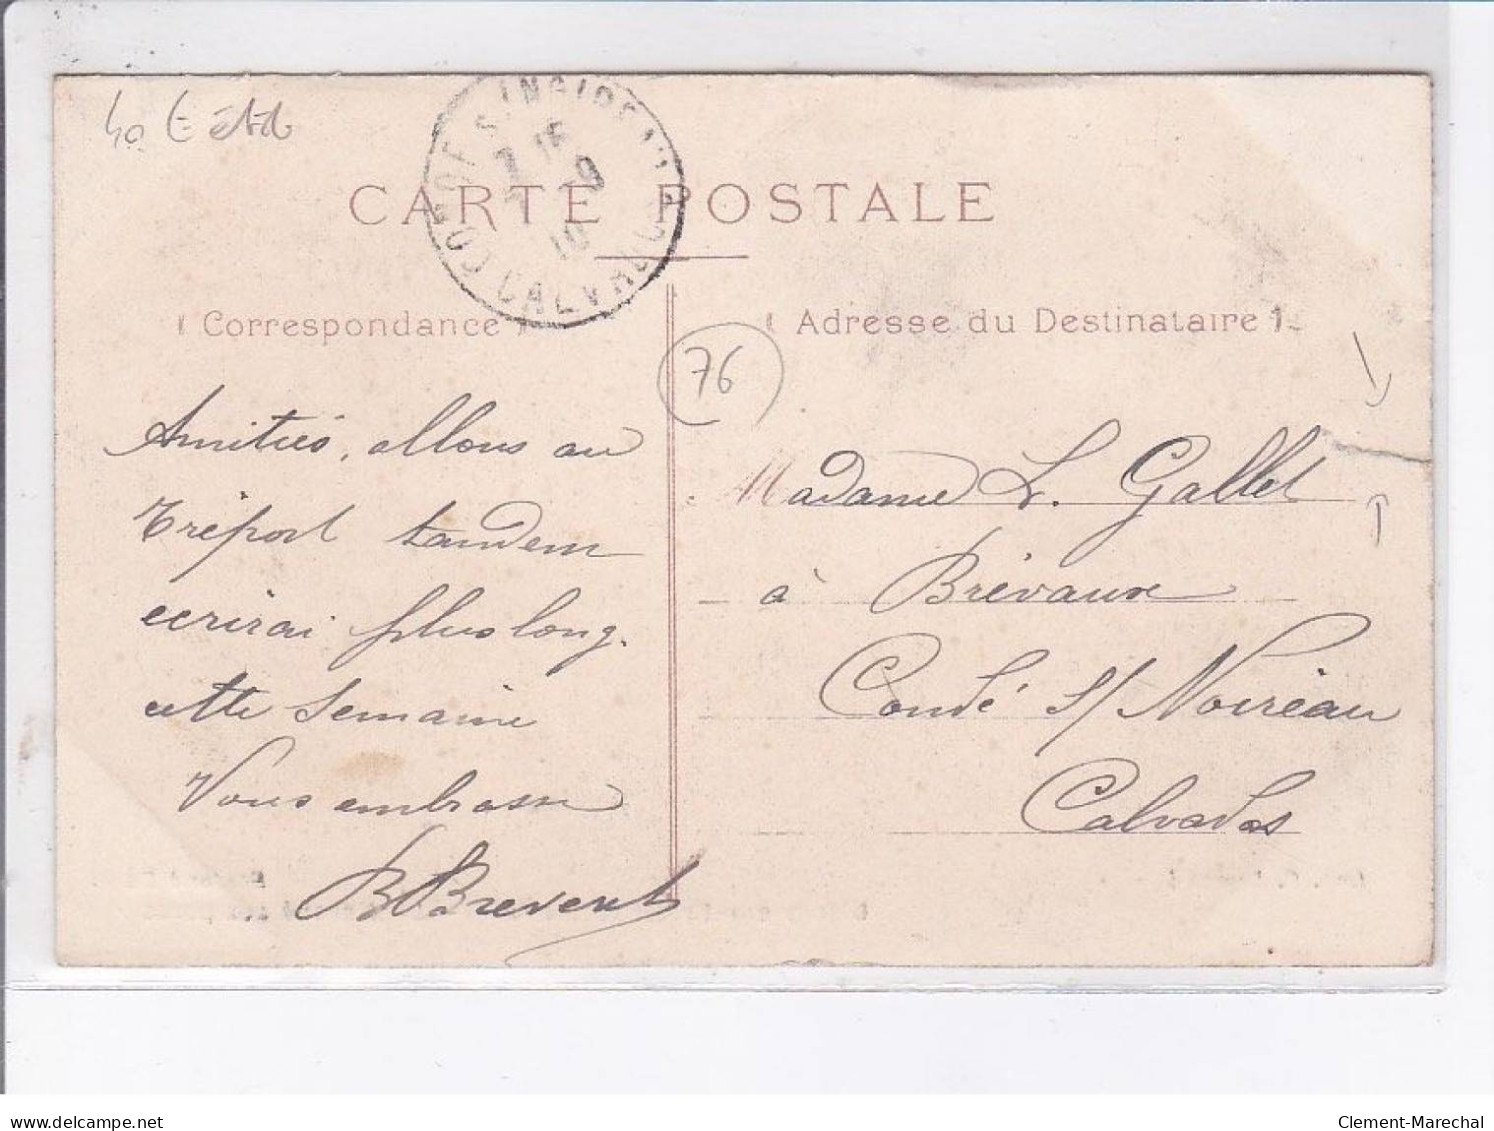 CARTE POSTALE
Correspondance
Adresse du Destinataire
76
Amitiés, allons au
Tréport tandem
ecrirai plus long.
cette semaine
Vous embrasse
B Brevent
Madame L. Gallet
à Brévaux
Condé s/ Noireau
Calvados
delcampe.net
Clement-Marechal